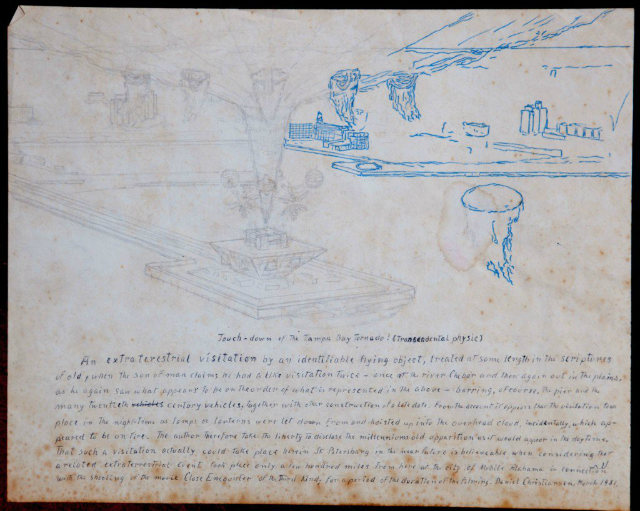 Touch-down of the Tampa Bay Tornado! (Transendental physic)
An extraterestrial visitation by an identifiable flying object, treated at some length in the scriptures
of old, when the son of man claims he had a like visitation twice - once at the river Chebar and then again out in the plains,
as he again saw what appears to be on the order of what is represented in the above - barring, of course, the pier and the
many twentieth century vehicles, together with other construction of a late date. From the account it appears that the visitation took
place in the nighttime as lamps or lanterns were let down from and hoisted up, into the overhead cloud, incidentally, which ap-
peared to be on fire. The author therefore takes the liberty to disclose the milleniums old apparition as it would appear in the daytime.
That such a visitation actually could take place herein St. Petersburg in the near future is believeable when considering that
a related extraterrestrial event took place only a few hundred miles from here at the city of Mobile Alabama in connection
with the shooting of the movie Close Encounter of the Third Kind, for a period of the duration of the filming. Daniel Christiansen, March 1981.